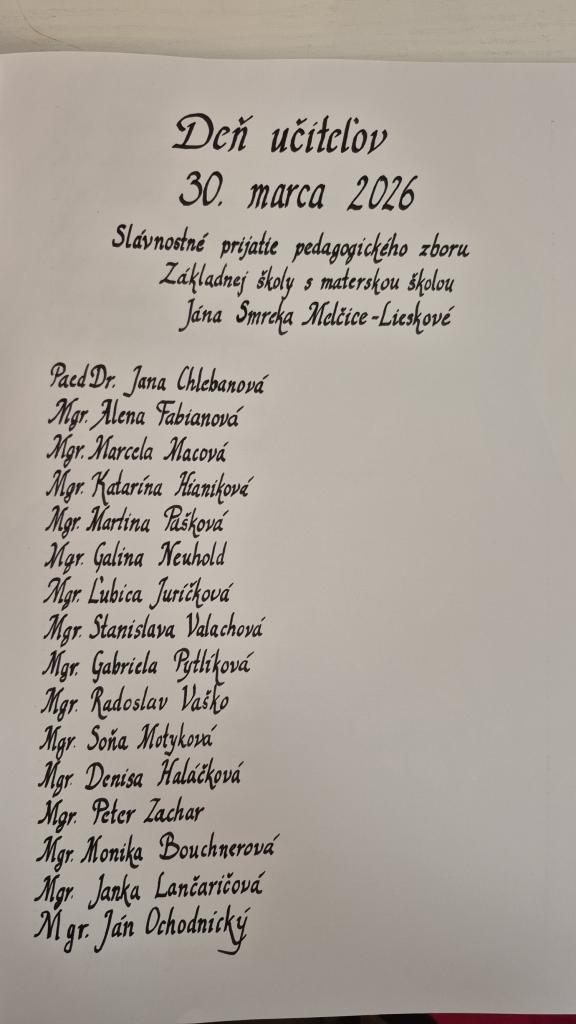 Deň učiteľov
30. marca 2026
Slávnostné prijatie pedagogického zboru
Základnej školy s materskou školou
Jána Smreka Melčice-Lieskové
PaedDr. Jana Chlebanová
Mgr. Alena Fabianová
Mgr. Marcela Macová
Mgr. Katarína Hianiková
Mgr. Martina Pašková
Mgr. Galina Neuhold
Mgr. Ľubica Juríčková
Mgr. Stanislava Valachová
Mgr. Gabriela Pytlíková
Mgr. Radoslav Vaško
Mgr. Soňa Motyková
Mgr. Denisa Haláčková
Mgr. Peter Zachar
Mgr. Monika Bouchnerová
Mgr. Janka Lančaričová
Mgr. Ján Ochodnický